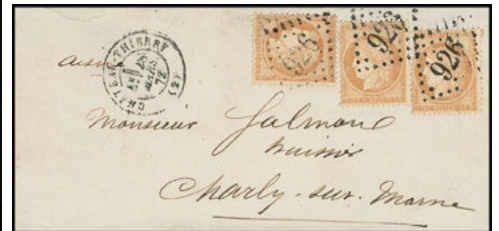 CHATEAU-THIERRY (2)
25
MARS
72
926
926
926
aisne
Monsieur Salmone
huissier
Charly-sur-Marne